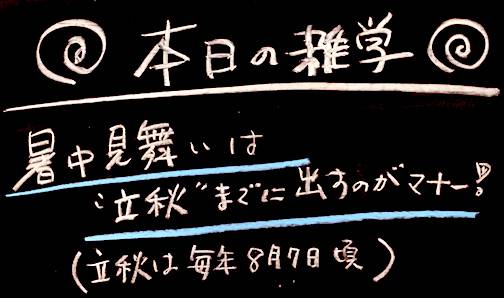 本日の雑学
暑中見舞いは
“立秋”までに出すのがマナー!!
(立秋は毎年8月7日頃)